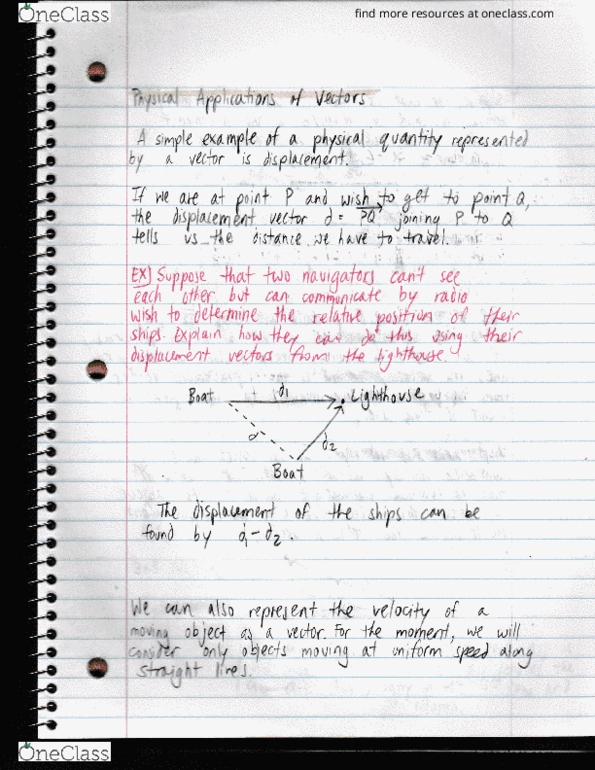 OneClass
find more resources at oneclass.com
Physical Applications of Vectors
A simple example of a physical quantity represented
by a vector is displacement.
If we are at point P and wish to get to point Q,
the displacement vector d = PQ joining P to Q
tells us the distance we have to travel.
EX) Suppose that two navigators can't see
each other but can communicate by radio
wish to determine the relative position of their
ships. Explain how they can do this using their
displacement vectors from the lighthouse
Boat d1 Lighthouse
d d2
Boat
The displacement of the ships can be
found by d1 - d2.
We can also represent the velocity of a
moving object as a vector. For the moment, we will
consider only objects moving at uniform speed along
straight lines.
OneClass